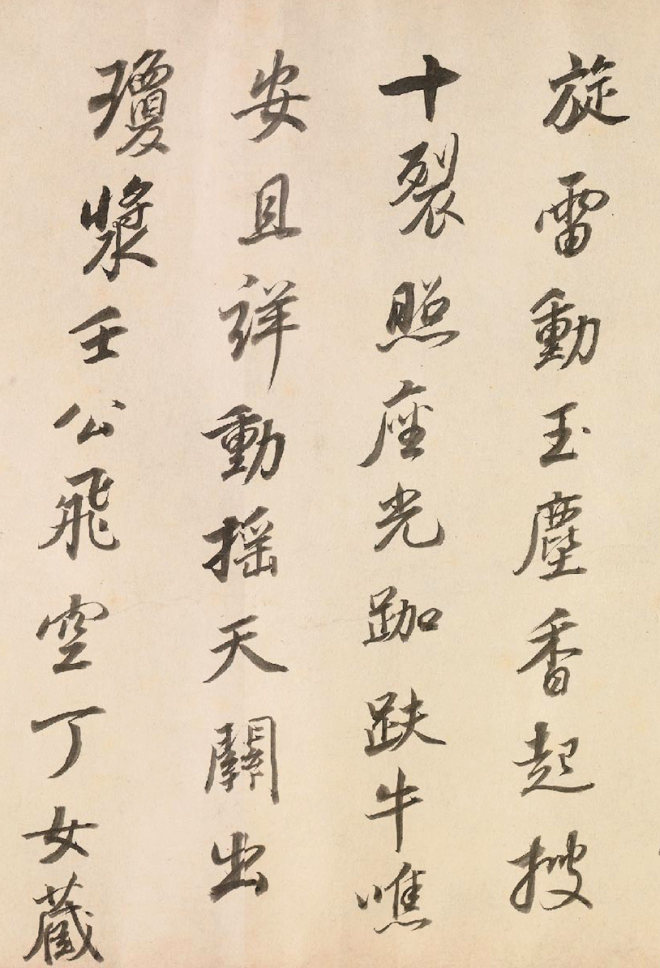 旋雷動玉塵香起搜
十裂照座光跏趺牛噍
安且詳動搖天關出
瓊漿壬公飛空丁女藏